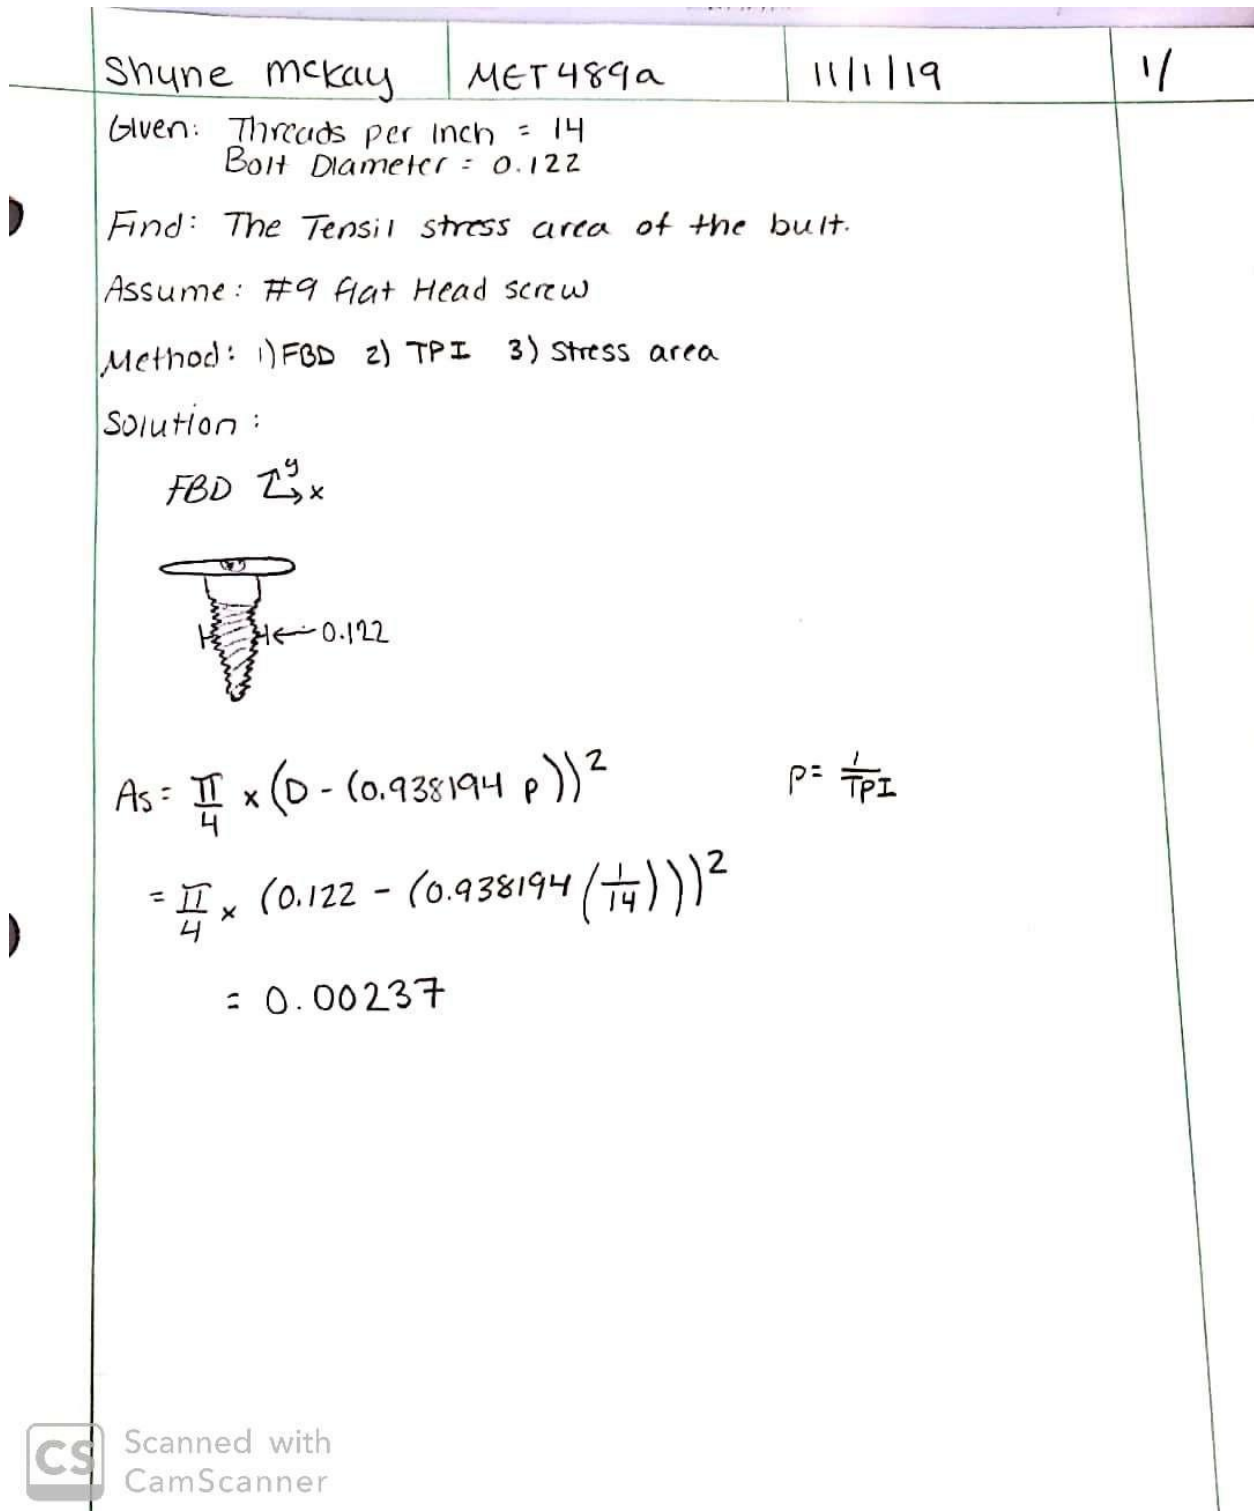 Shyne McKay MET 489a 11/1/19 1/
Given: Threads per Inch = 14
Bolt Diameter = 0.122
Find: The Tensil stress area of the bult.
Assume: #9 flat Head screw
Method: 1) FBD 2) TPI 3) Stress area
Solution:
FBD y x
0.122
As = π/4 x (D - (0.938194 p))² p = 1/TPI
= π/4 x (0.122 - (0.938194 (1/14)))²
= 0.00237
CS Scanned with
CamScanner